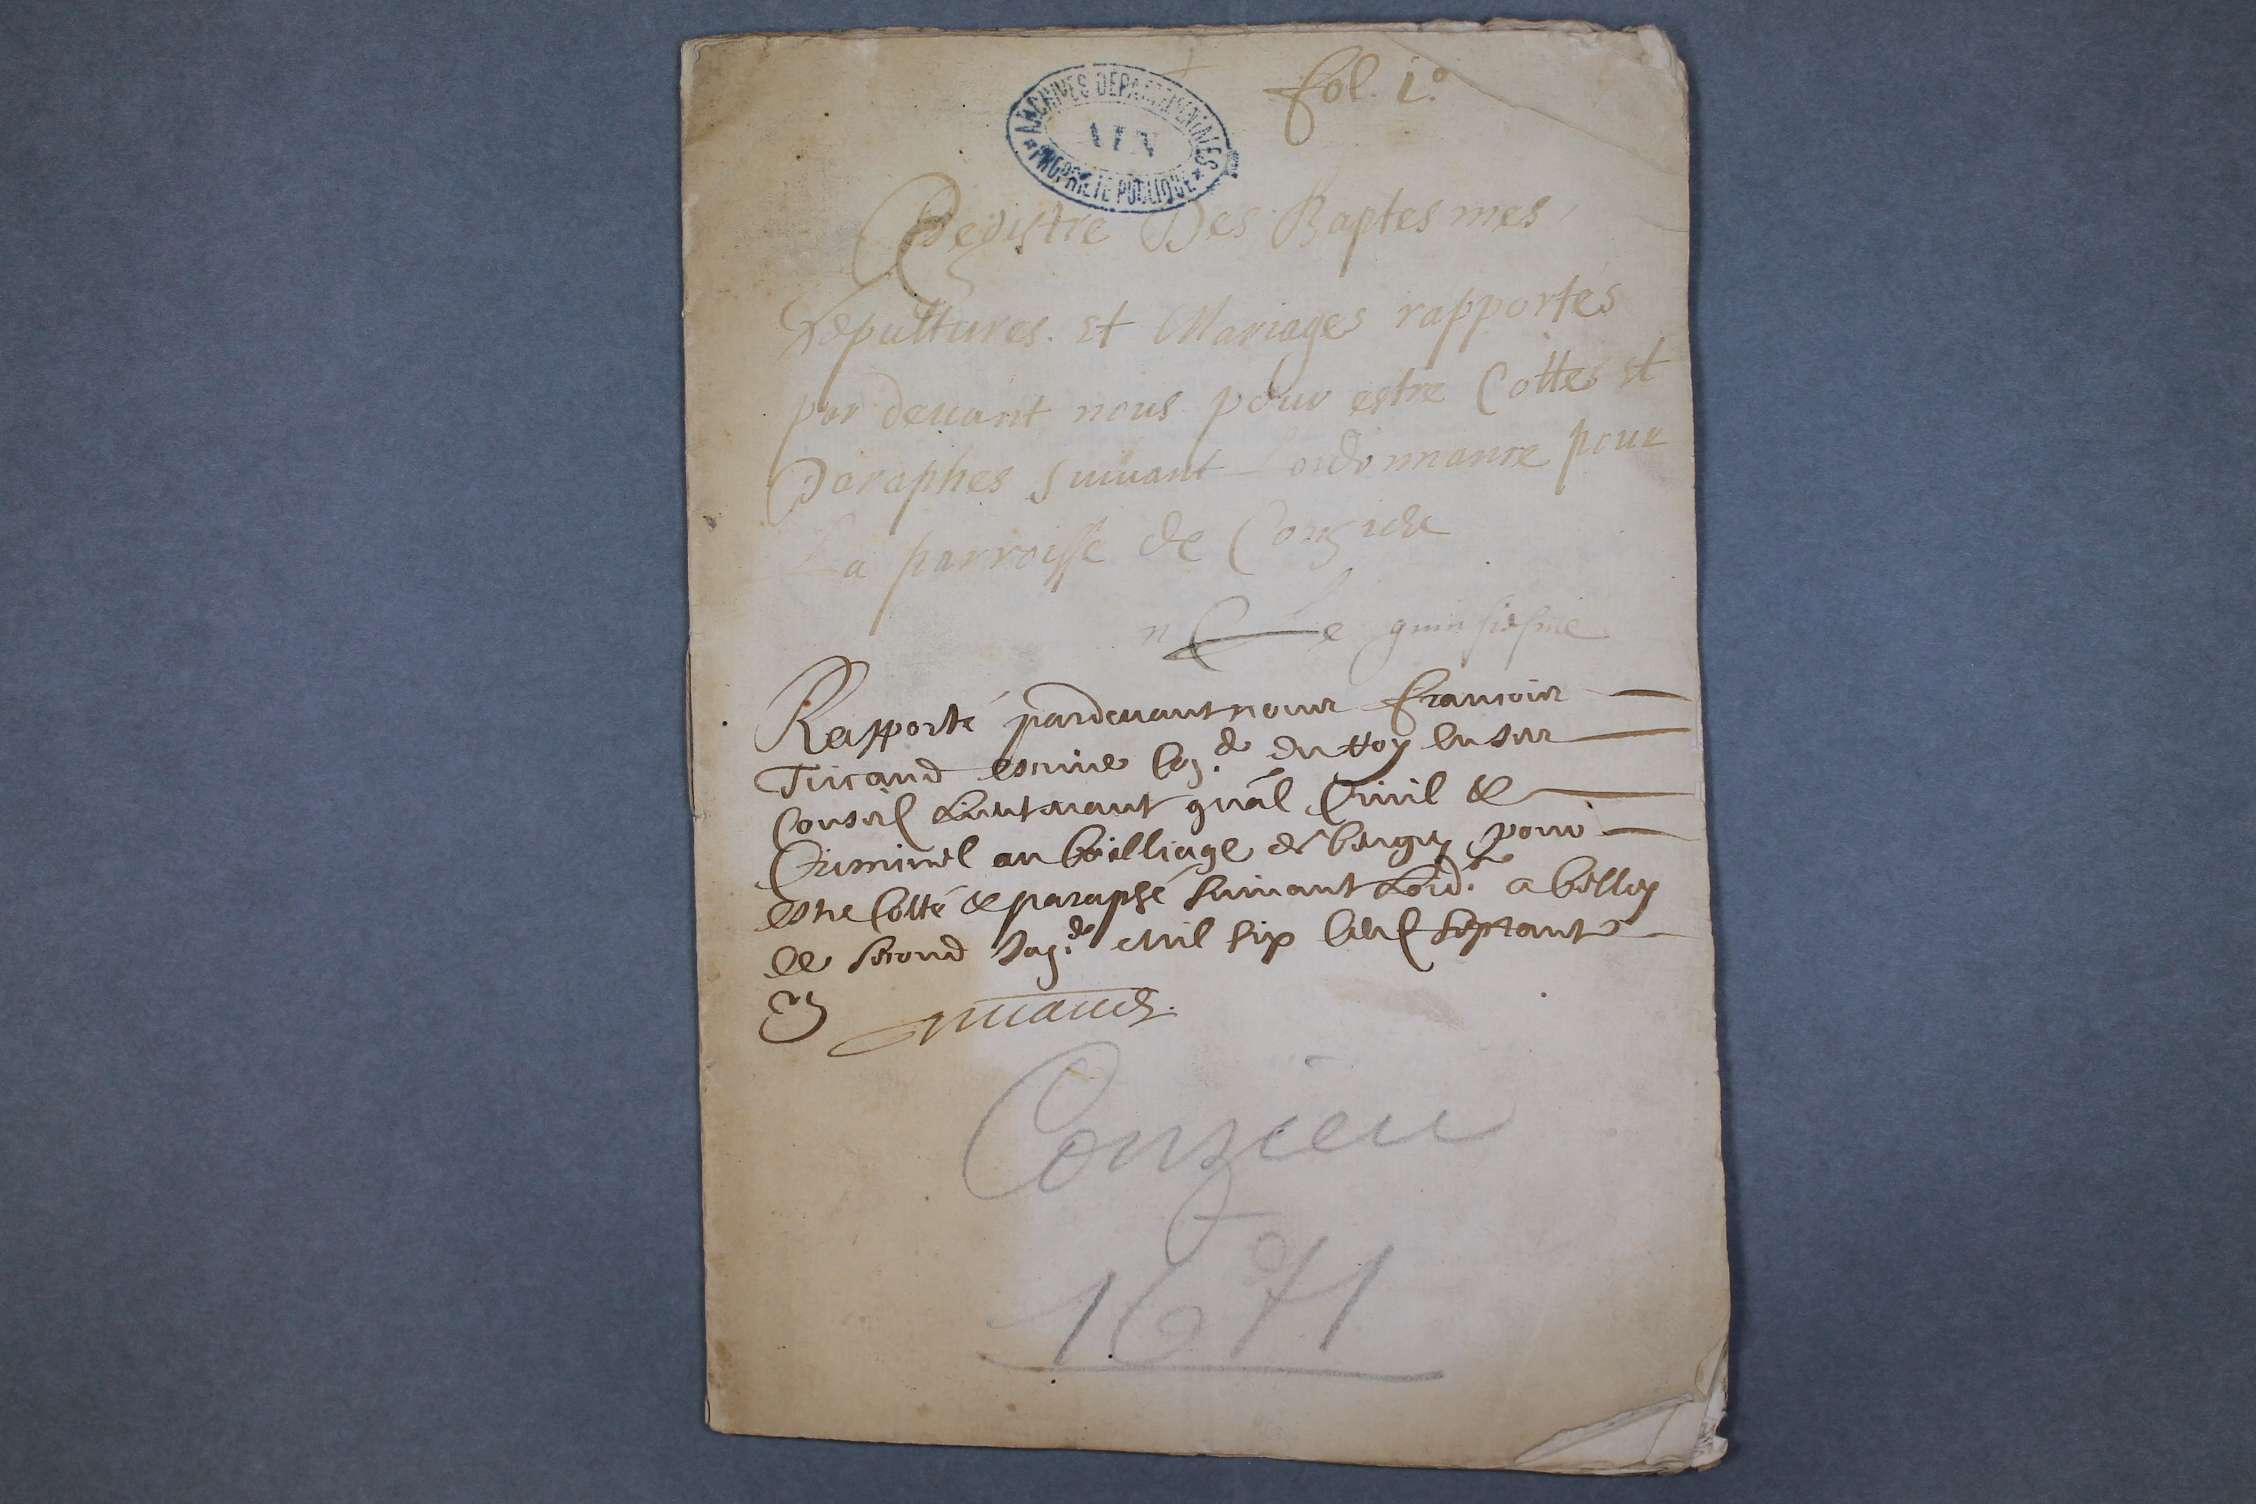 fol. 1.º
ARCHIVES DEPARTEMENTALES
AIN
PROPRIETE PUBLIQUE
Registre Des Baptesmes
Sepultures. et Mariages rapportés
par devant nous pour estre Cottes et
Paraphes Suivant Lordonnance pour
La parroisse de Conzieu
Rapporté pardevant nous francois
escuier Coner du Roy en ses
Conseil Lieutenant gnâl Civil &
Criminel au bailliage de bugey pour
estre Cotté & paraphé suivant Lord.ce a belley
le second mil six Cent septante
Conzieu
1671